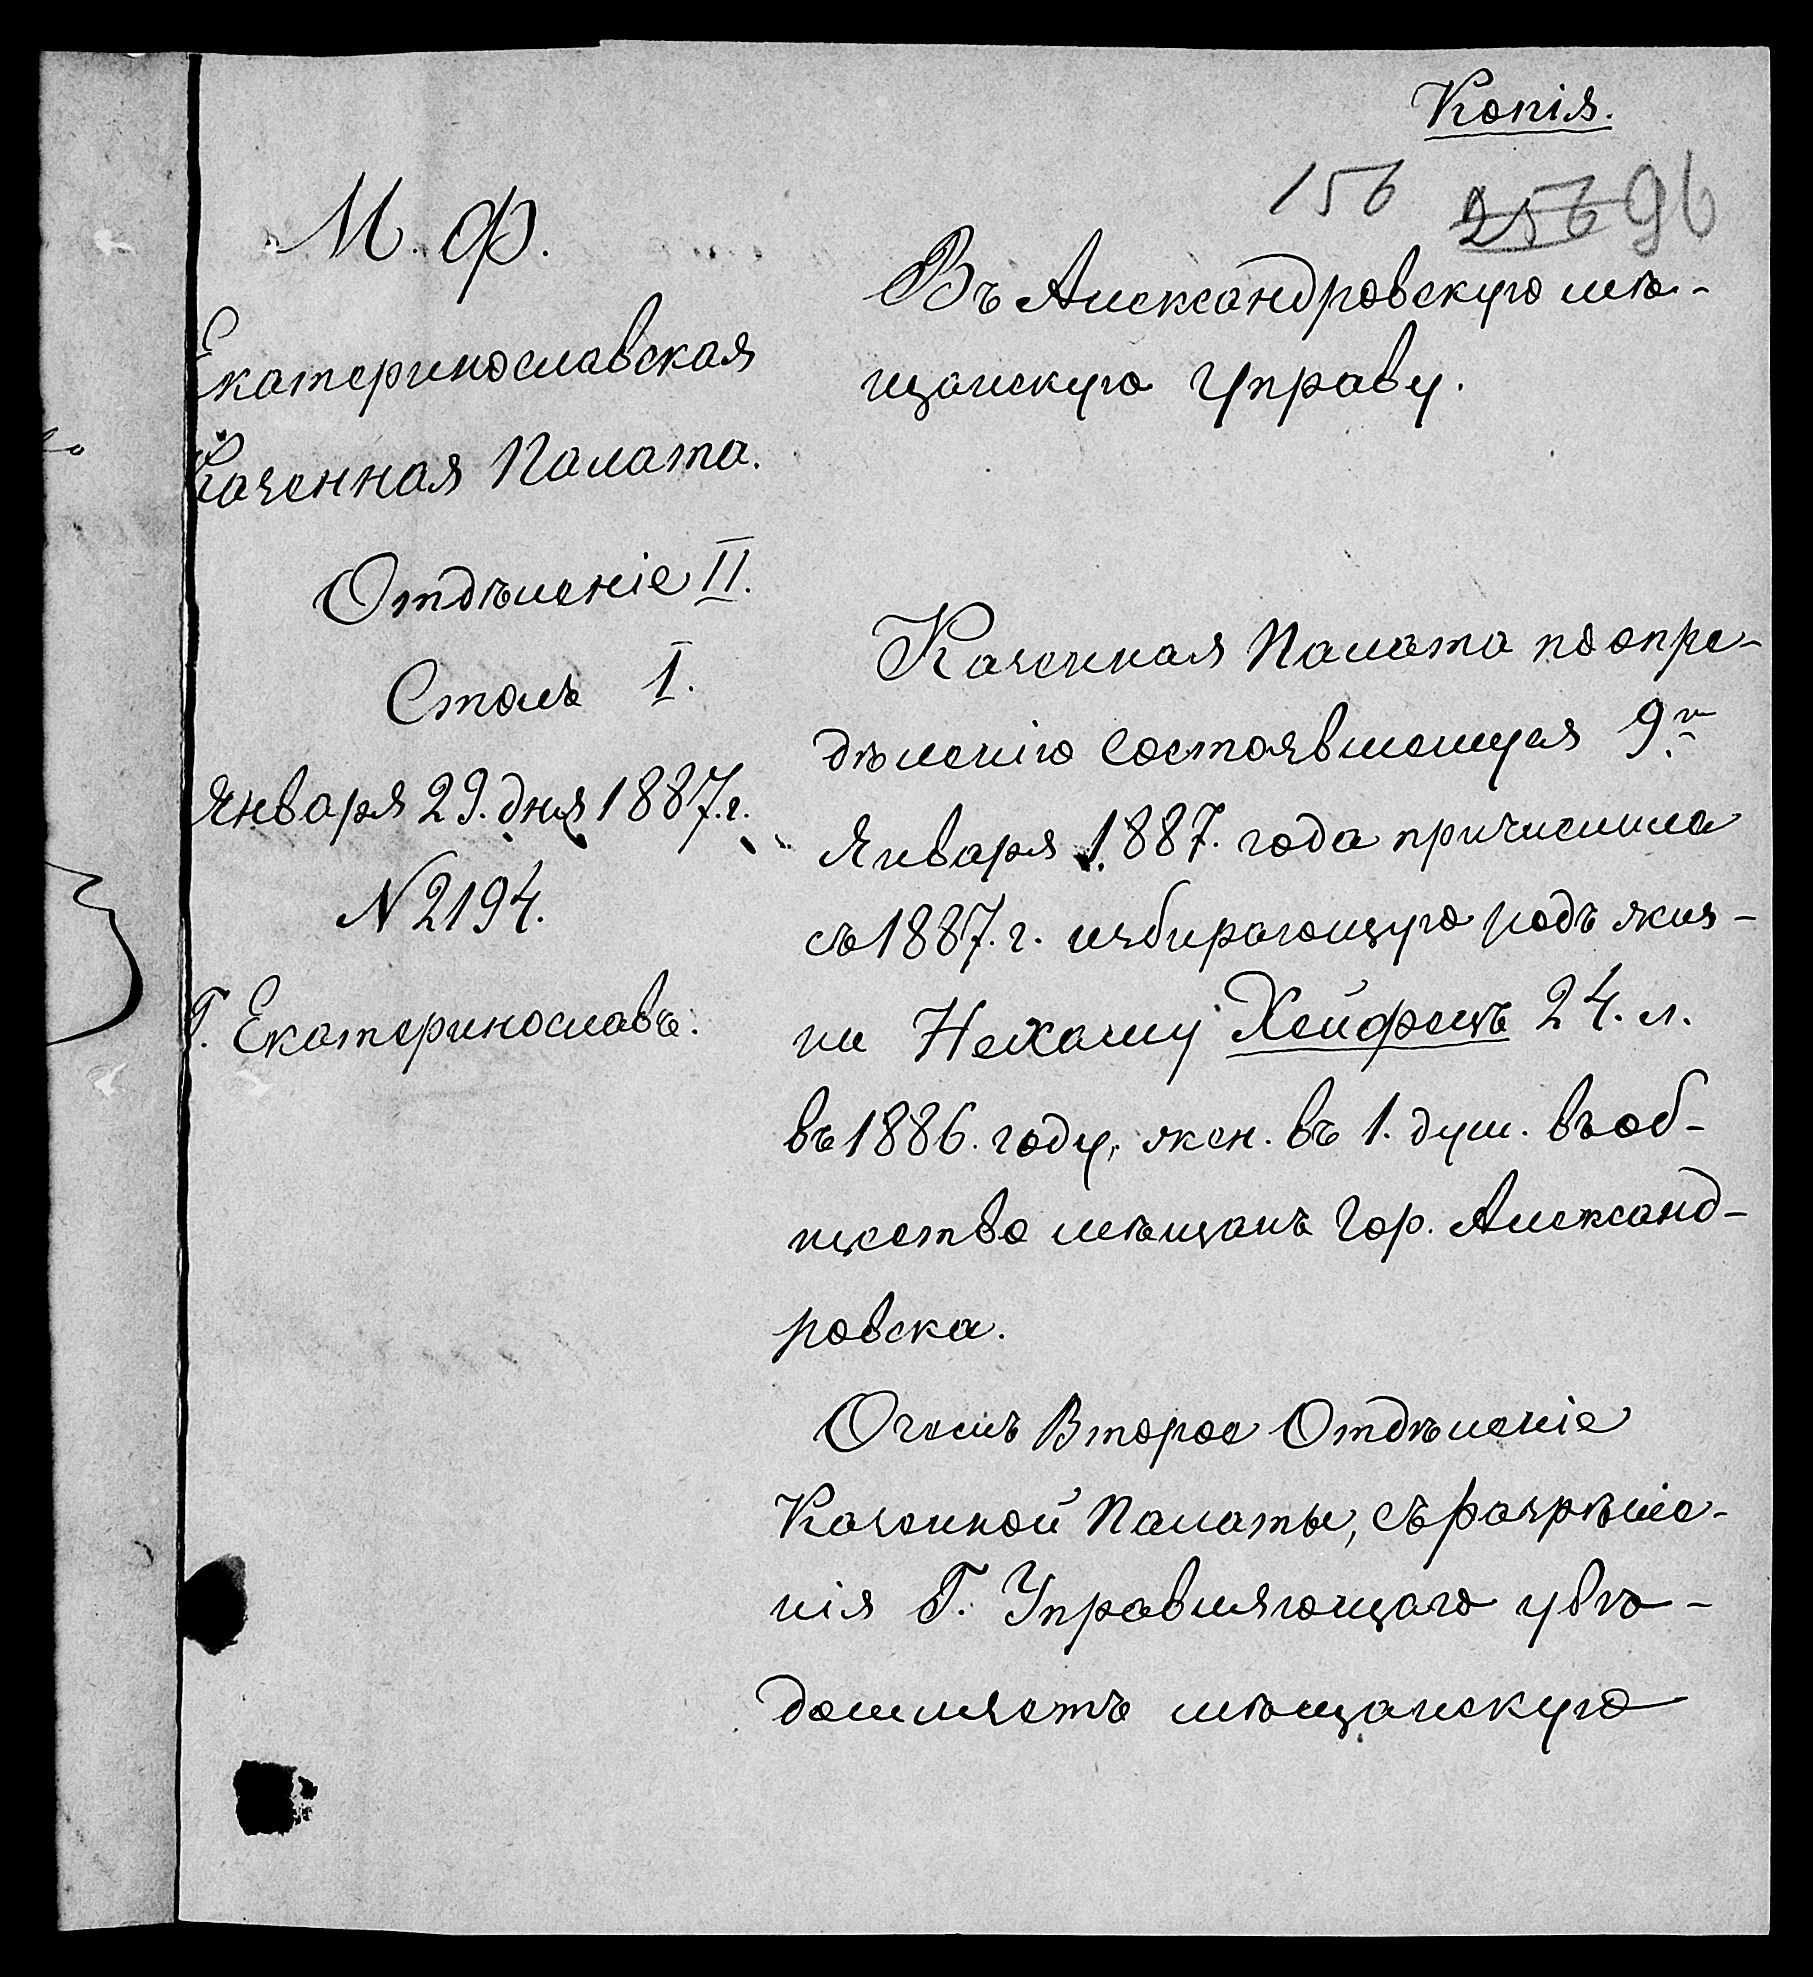 Копія.
156 256 96
М. Ф.
Екатеринославская
Казенная Палата.
Отдѣленіе II.
Столъ I.
Января 29. дня 1887. г.
N 2194.
Г. Екатеринославъ.
Въ Александровскую мѣ-
щанскую Управу.
Казенная Палата по опре-
дѣленію состоявшемуся 9го
Января 1887. года причислила
съ 1887. г. избирающую родъ жиз-
ни Нехаму Хейфецъ 24. л.
въ 1886. году, жен. въ 1. душ. въ об-
щество мѣщанъ Гор. Александ-
ровска.
О чемъ Второе Отдѣленіе
Казенной Палаты, съ разрѣше-
нія Г. Управляющаго увѣ-
домляетъ мѣщанскую